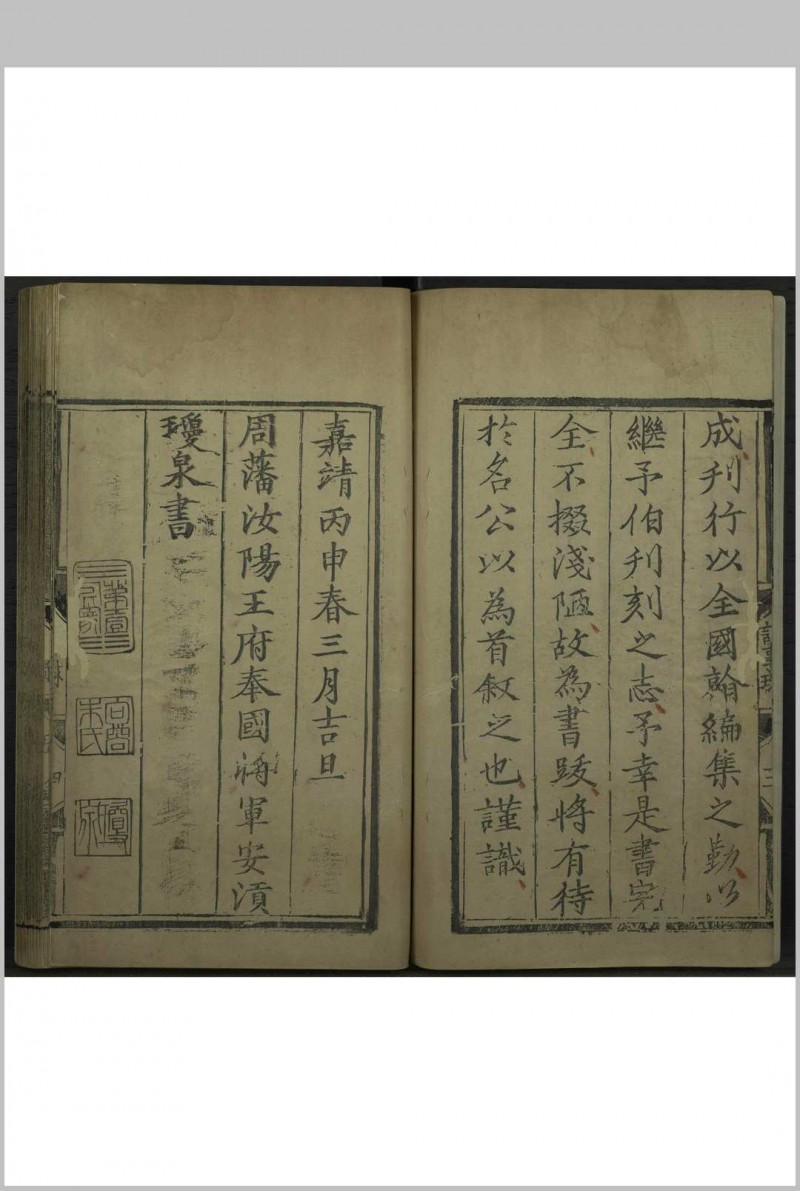 成刋行以全國翰編集之勤以
繼予伯刋刻之志予幸是書完
全不掇淺陋故為書跋將有待
扵名公以為首叙之也謹識
嘉靖丙申春三月吉旦
周藩汝陽王府奉國將軍安㳙
瓊泉書